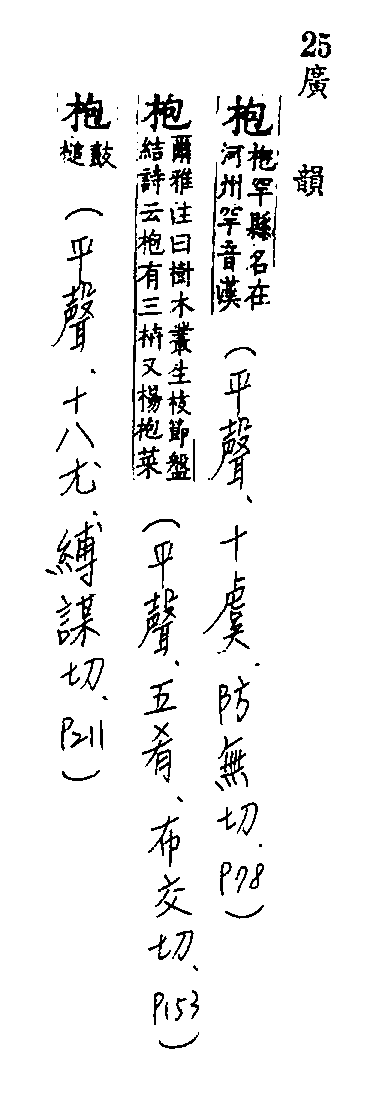 25 廣韻
枹 枹罕縣名在河州罕音漢（平聲、十虞、防無切、P78）
枹 爾雅注曰樹木叢生枝節盤結詩云枹有三枿又楊枹菜（平聲、五肴、布交切、P153）
枹 鼓槌（平聲、十八尤、縛謀切、P211）